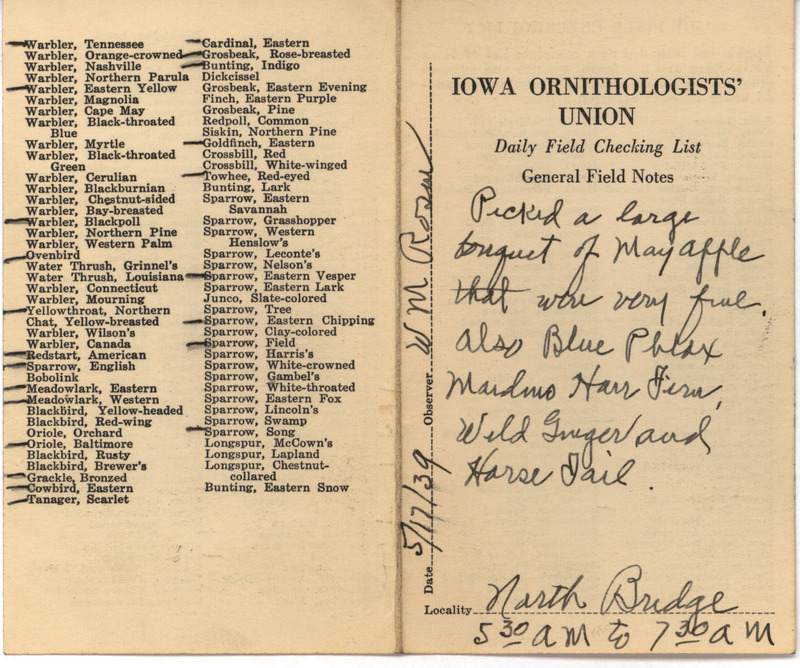 Warbler, Tennessee
Warbler, Orange-crowned
Warbler, Nashville
Warbler, Northern Parula
Warbler, Eastern Yellow
Warbler, Magnolia
Warbler, Cape May
Warbler, Black-throated
Blue
Warbler, Myrtle
Warbler, Black-throated
Green
Warbler, Cerulian
Warbler, Blackburnian
Warbler, Chestnut-sided
Warbler, Bay-breasted
Warbler, Blackpoll
Warbler, Northern Pine
Warbler, Western Palm
Ovenbird
Water Thrush, Grinnel's
Water Thrush, Louisiana
Warbler, Connecticut
Warbler, Mourning
Yellowthroat, Northern
Chat, Yellow-breasted
Warbler, Wilson's
Warbler, Canada
Redstart, American
Sparrow, English
Bobolink
Meadowlark, Eastern
Meadowlark, Western
Blackbird, Yellow-headed
Blackbird, Red-wing
Oriole, Orchard
Oriole, Baltimore
Blackbird, Rusty
Blackbird, Brewer's
Grackle, Bronzed
Cowbird, Eastern
Tanager, Scarlet
Cardinal, Eastern
Grosbeak, Rose-breasted
Bunting, Indigo
Dickcissel
Grosbeak, Eastern Evening
Finch, Eastern Purple
Grosbeak, Pine
Redpoll, Common
Siskin, Northern Pine
Goldfinch, Eastern
Crossbill, Red
Crossbill, White-winged
Towhee, Red-eyed
Bunting, Lark
Sparrow, Eastern
Savannah
Sparrow, Grasshopper
Sparrow, Western
Henslow's
Sparrow, Leconte's
Sparrow, Nelson's
Sparrow, Eastern Vesper
Sparrow, Eastern Lark
Junco, Slate-colored
Sparrow, Tree
Sparrow, Eastern Chipping
Sparrow, Clay-colored
Sparrow, Field
Sparrow, Harris's
Sparrow, White-crowned
Sparrow, Gambel's
Sparrow, White-throated
Sparrow, Eastern Fox
Sparrow, Lincoln's
Sparrow, Swamp
Sparrow, Song
Longspur, McCown's
Longspur, Lapland
Longspur, Chestnut-
collared
Bunting, Eastern Snow
Date 5/17/39 Observer W M Rosen
IOWA ORNITHOLOGISTS'
UNION
Daily Field Checking List
General Field Notes
Picked a large
of May apple
that were very fine.
also Blue Phlox
Harr Fern,
Wild Ginger and
Horse Tail.
Locality North Bridge
5 30 AM to 7 30 AM